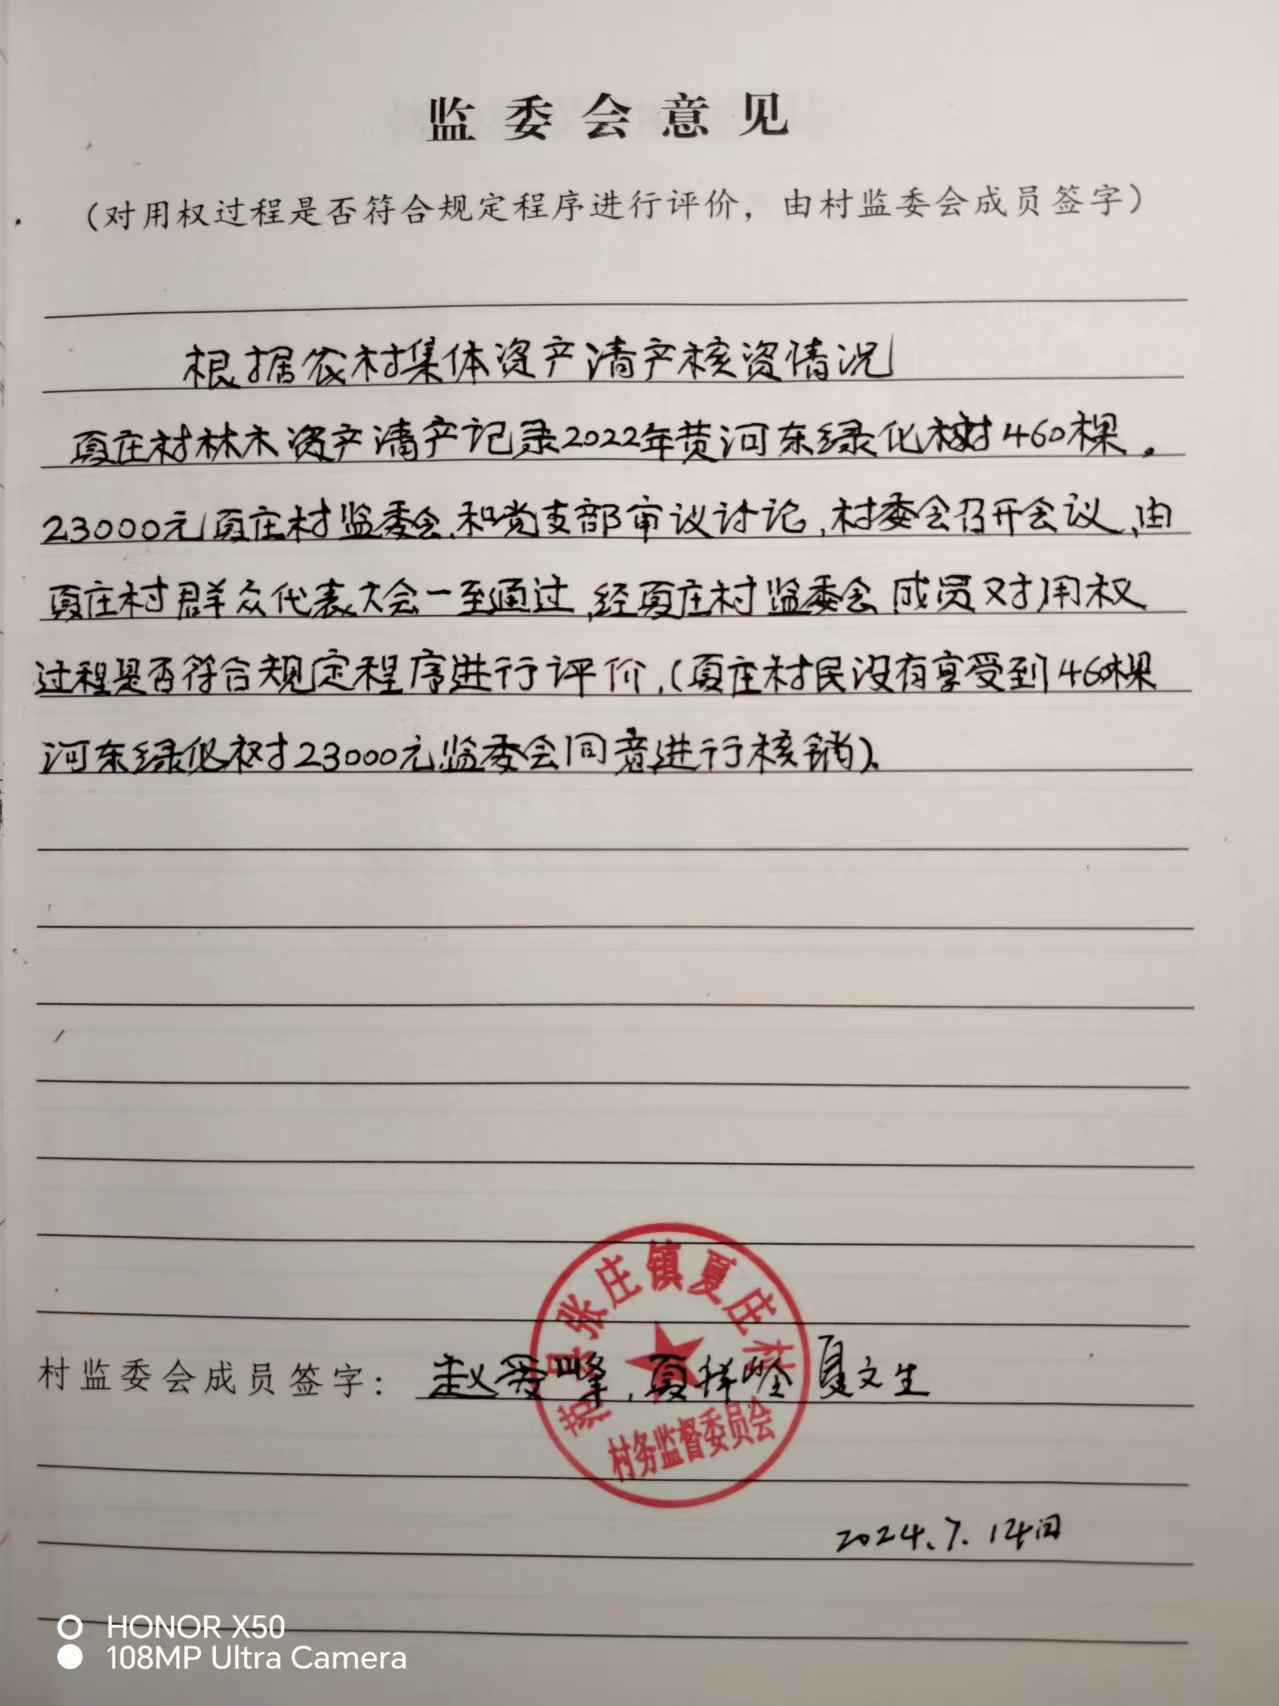 监委会意见
（对用权过程是否符合规定程序进行评价，由村监委会成员签字）
根据农村集体资产清产核资情况
夏庄村林木资产清产记录2022年黄河东绿化树460棵.
23000元夏庄村监委会,和党支部审议讨论,村委会召开会议,由
夏庄村群众代表大会一至通过,经夏庄村监委会成员对用权
过程是否符合规定程序进行评价,(夏庄村民没有享受到460棵
河东绿化树23000元监委会同意进行核销)。
县张庄镇夏庄村
村监委会成员签字：赵 峰,夏祥 夏文生
村务监督委员会
2024.7.14日
HONOR X50
108MP Ultra Camera